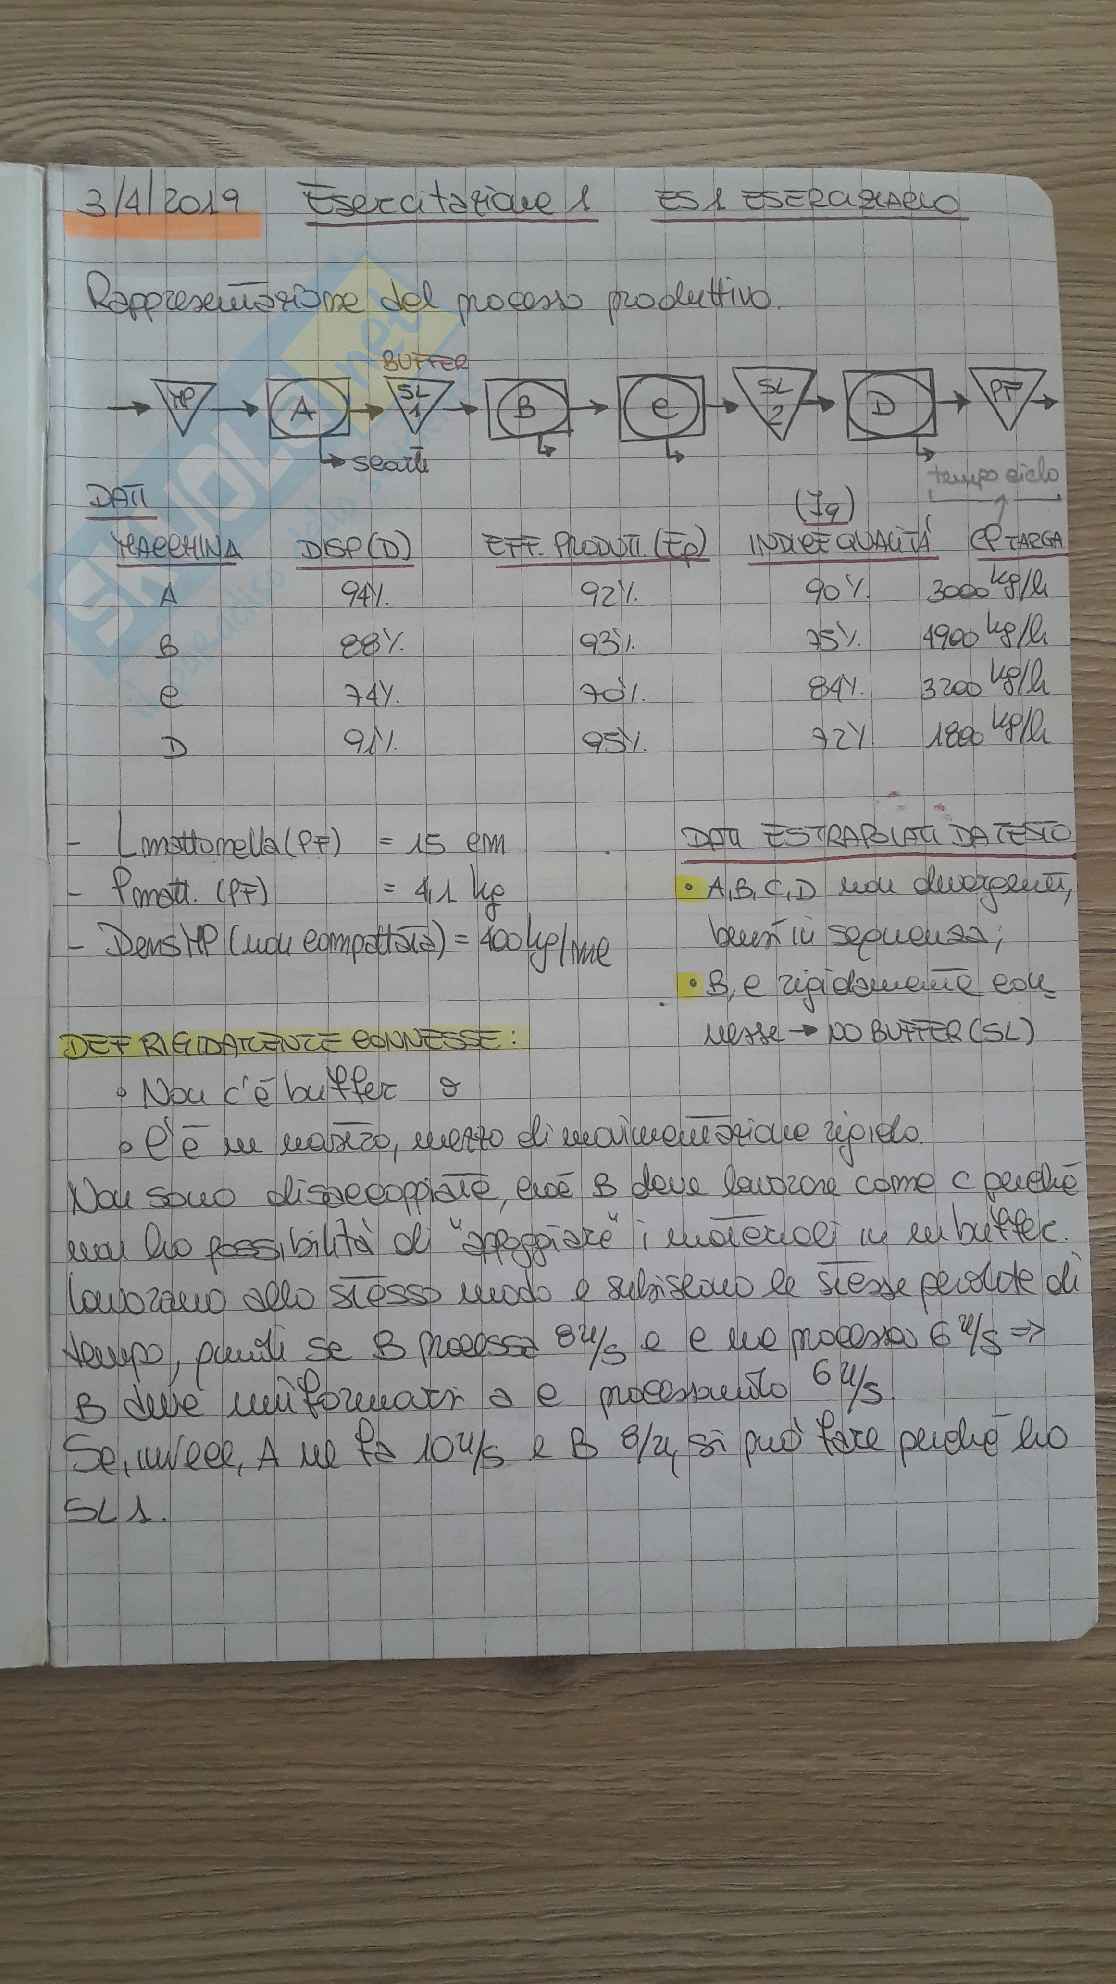 3/4/2019 Esercitazione 1 ES 1 ESERCIZIARIO
Rappresentazione del processo produttivo.
BUFFER
MP A SL 1 B C SL 2 D PF
scarti
tempo ciclo
DATI
(Iq)
MACCHINA DISP(D) EFF. PRODUTT.(Ep) INDICE QUALITÀ CP TARGA
A 94% 92% 90% 3000 kg/h
B 88% 93% 75% 4900 kg/h
C 74% 70% 84% 3200 kg/h
D 91% 95% 72% 1800 kg/h
- Lmattonella (PF) = 15 cm
- Pmatt. (PF) = 4,1 kg
- Dens MP (non compattata) = 400 kg/mc
DATI ESTRAPOLATI DA TESTO
• A, B, C, D non divergenti,
bensì in sequenza;
• B, C rigidamente con-
nesse → NO BUFFER (SL)
DEF RIGIDAMENTE CONNESSE:
• Non c'è buffer o
• C'è un nastro, mezzo di movimentazione rigido.
Non sono disaccoppiate, cioè B deve lavorare come C perché
non ho possibilità di "appoggiare" i materiali in un buffer.
Lavorano allo stesso modo e subiscono le stesse perdite di
tempo, quindi se B processa 8 u/s e C ne processa 6 u/s ⇒
B deve uniformarsi a C processando 6 u/s
Se, invece, A ne fa 10 u/s e B 8/u, si può fare perché ho
SL 1.
SKUOLA.net